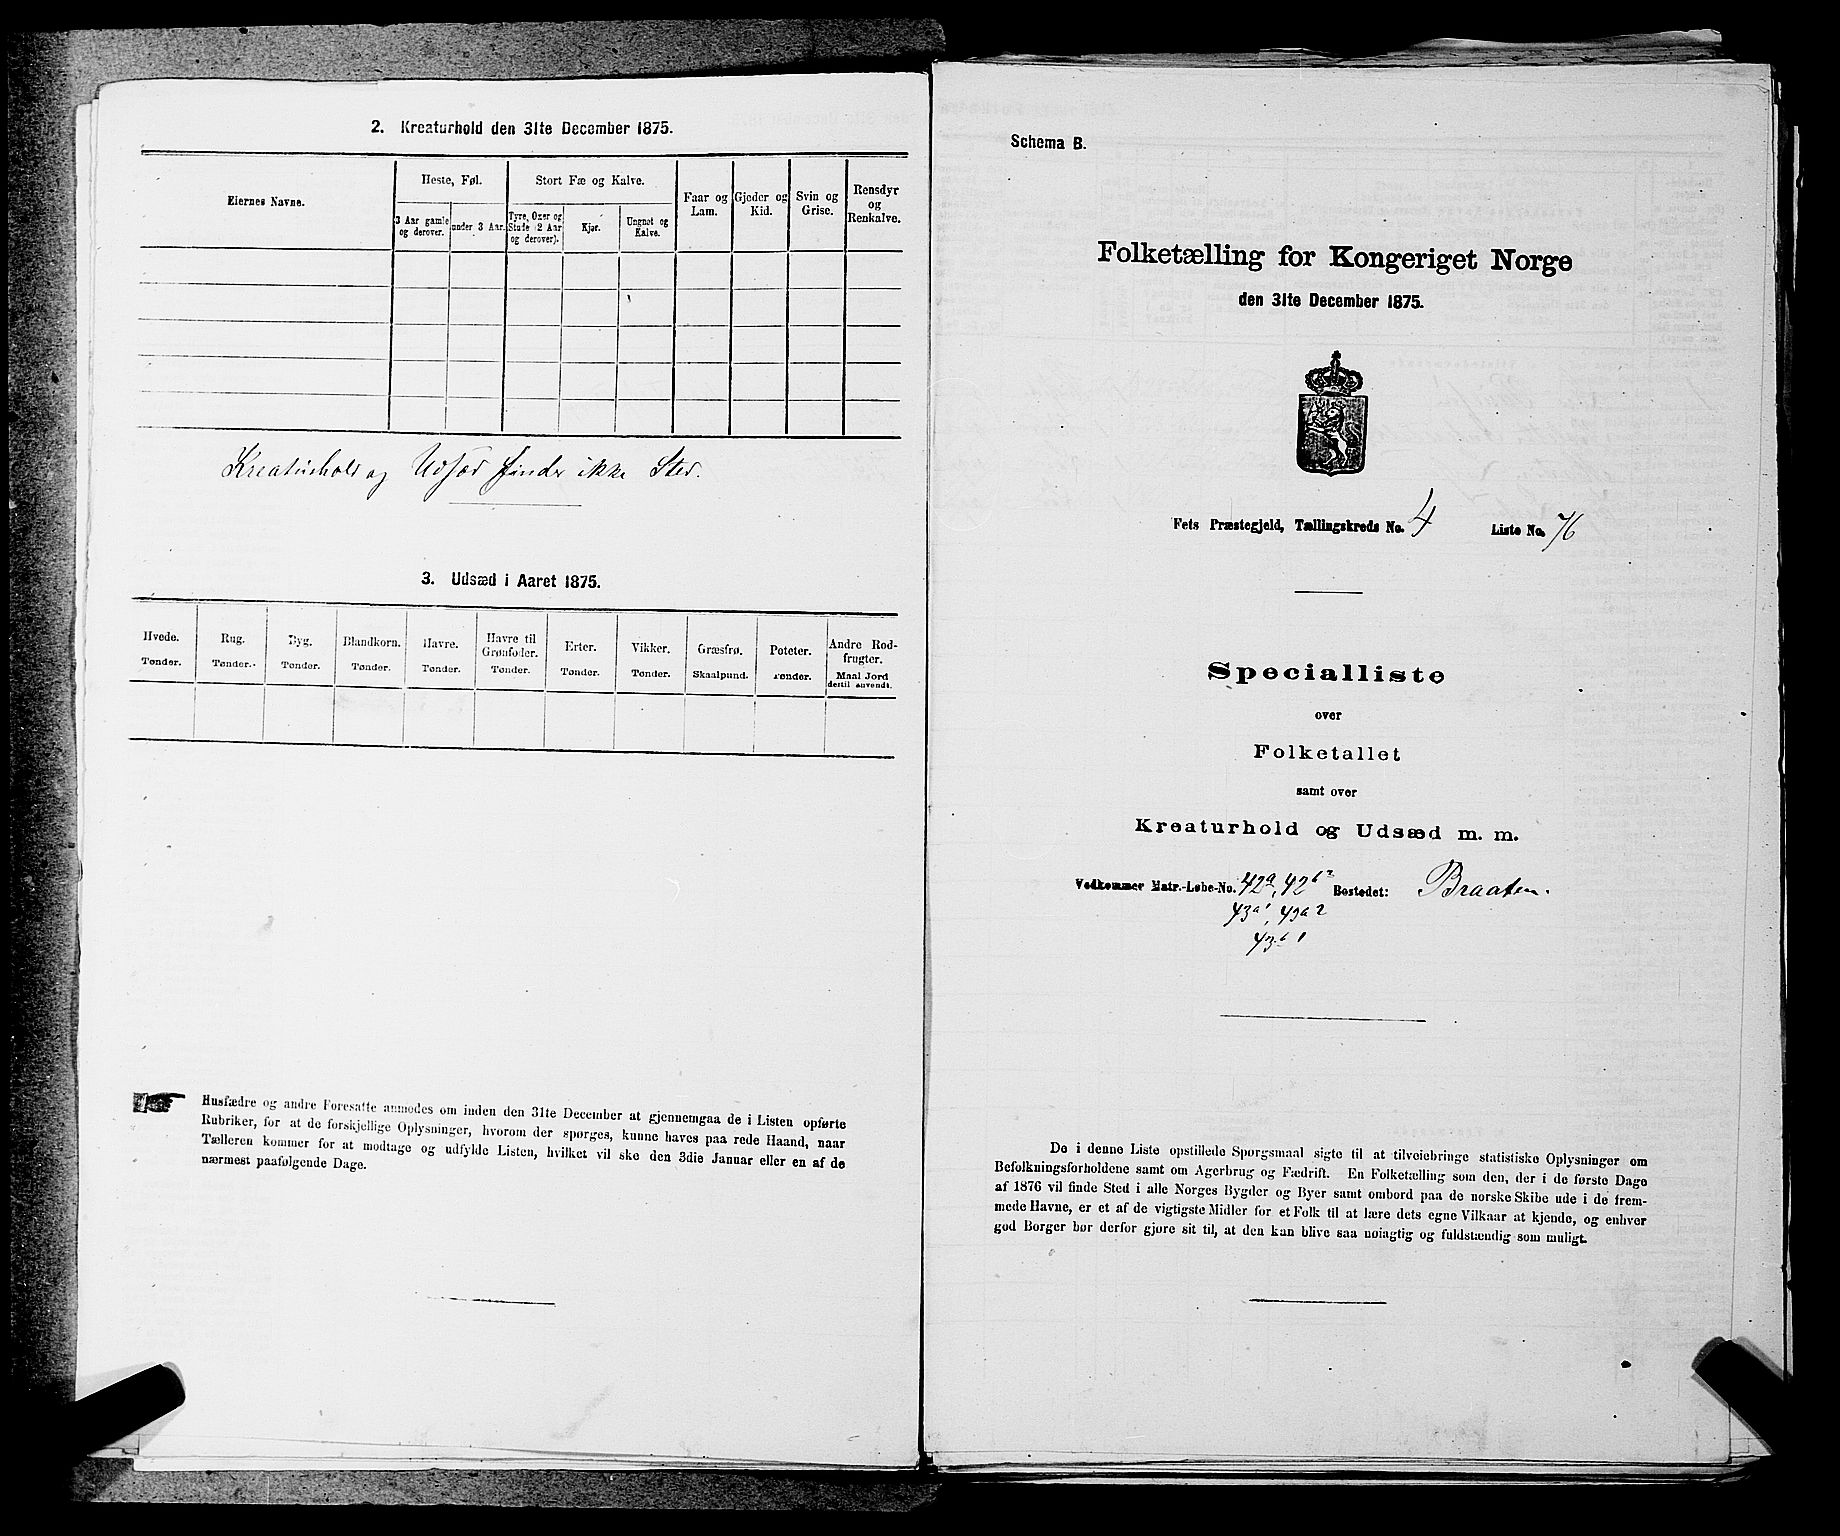 2. Kreaturhold den 31te December 1875.
Eiernes Navne.
Heste, Føl.
Stort Fæ og Kalve.
Faar og Lam.
Gjeder og Kid.
Svin og Grise.
Rensdyr og Renkalve.
3 Aar gamle og derover.
under 3 Aar.
Tyre, Oxer og Stude (2 Aar og derover).
Kjør.
Ungnøt og Kalve.
Kreaturhold og Udsæd finder ikke Sted.
3. Udsæd i Aaret 1875.
Hvede. Tønder.
Rug. Tønder.
Byg. Tønder.
Blandkorn. Tønder.
Havre. Tønder.
Havre til Grønfoder. Tønder.
Erter. Tønder.
Vikker. Tønder.
Græsfrø. Skaalpund.
Poteter. Tønder.
Andre Rodfrugter. Maal Jord dertil anvendt.
Husfædre og andre Foresatte anmodes om inden den 31te December at gjennemgaa de i Listen opførte
Rubriker, for at de forskjellige Oplysninger, hvorom der spørges, kunne haves paa rede Haand, naar
Tælleren kommer for at modtage og udfylde Listen, hvilket vil ske den 3die Januar eller en af de
nærmest paafølgende Dage.
Schema B.
Folketælling for Kongeriget Norge
den 31te December 1875.
Fets Præstegjeld, Tællingskreds No. 4 Liste No. 76
Specialliste
over
Folketallet
samt over
Kreaturhold og Udsæd m. m.
Vedkommer Matr.-Løbe-No. 42a, 42b2 Bostedet: Braaten.
43a1, 43a2
43b1
De i denne Liste opstillede Spørgsmaal sigte til at tilveiebringe statistiske Oplysninger om
Befolkningsforholdene samt om Agerbrug og Fædrift. En Folketælling som den, der i de første Dage
af 1876 vil finde Sted i alle Norges Bygder og Byer samt ombord paa de norske Skibe ude i de frem-
mede Havne, er et af de vigtigste Midler for et Folk til at lære dets egne Vilkaar at kjende, og enhver
god Borger bør derfor gjøre sit til, at den kan blive saa nøiagtig og fuldstændig som muligt.